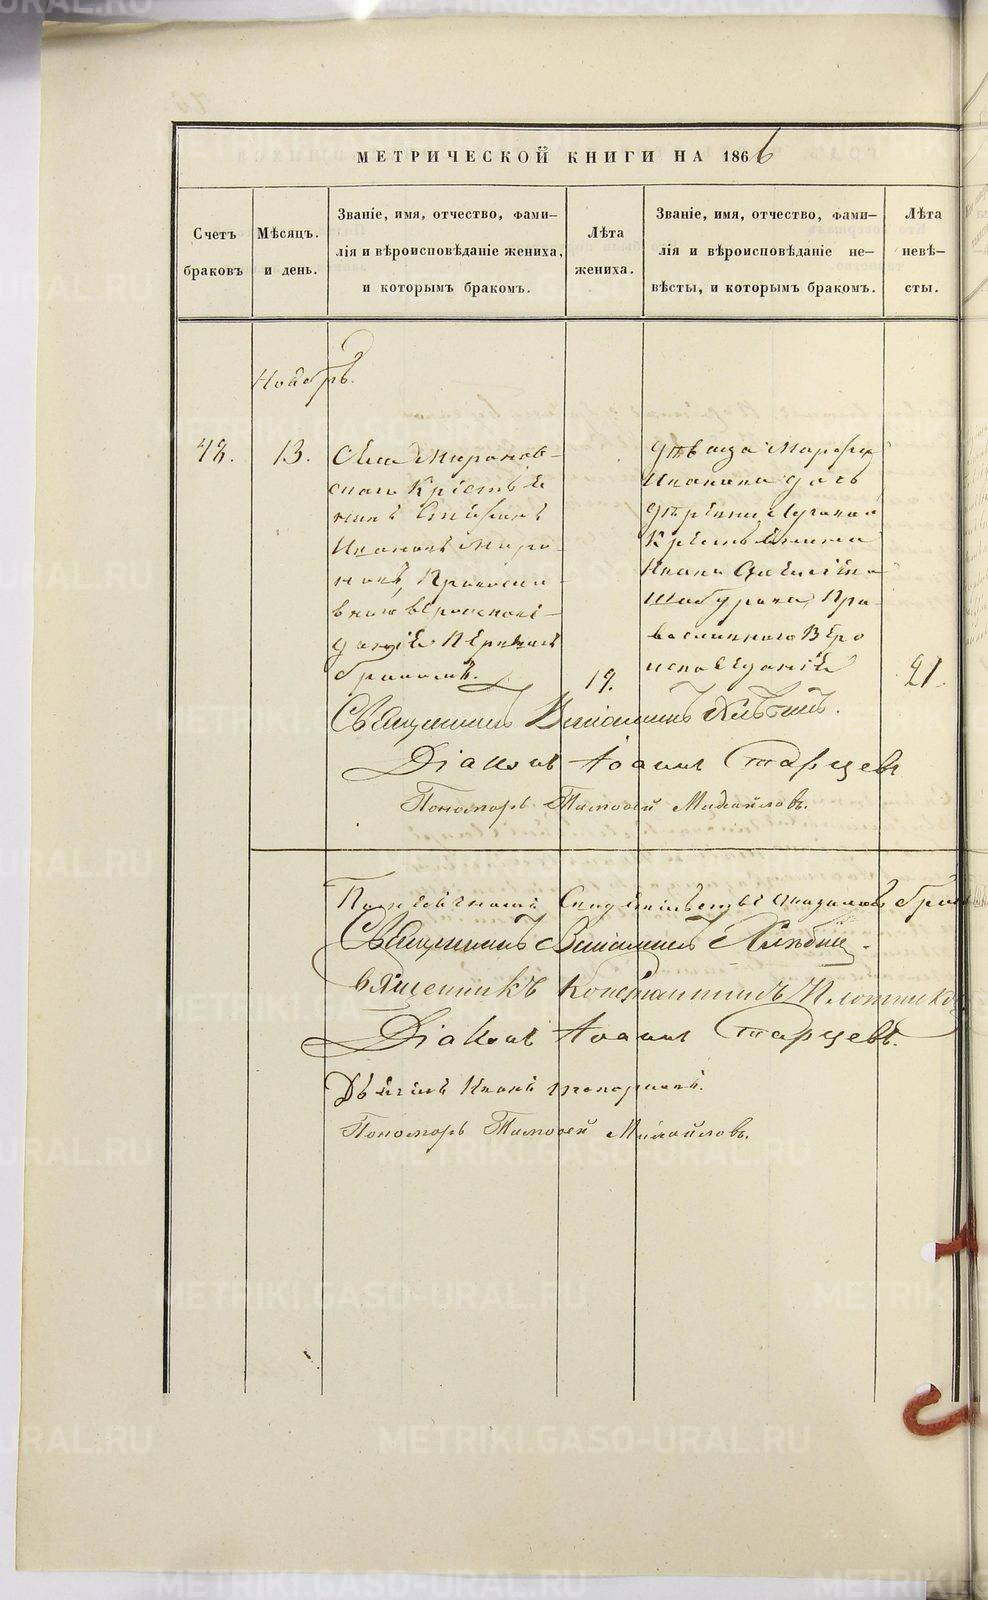 МЕТРИЧЕСКОЙ КНИГИ НА 1866
Счетъ браковъ
Мѣсяцъ. и день.
Званіе, имя, отчество, фами-
лія и вѣроисповѣданіе жениха,
и которымъ бракомъ.
Лѣта жениха.
Званіе, имя, отчество, фами-
лія и вѣроисповѣданіе не-
вѣсты, и которымъ бракомъ.
Лѣта невѣ-
сты.
Ноябрь.
42.
13.
Села Миронов-
скаго Крестья
нинъ Стефанъ
Ивановъ Миро-
новъ, Православ
наго вѣроиспові-
даніе Первымъ
бракомъ.
19.
дѣвица Марфа
Иванова дочь
деревни Луговой
Крестьянина
Ивана
Шабурова, Пра-
вославнаго Веро
исповеданіе
21.
Священникъ Веніаминъ Хлѣбинъ.
Діаконъ Іоаннъ Старцевъ
Пономарь Тимофей Михайловъ.
Священникъ Веніаминъ Хлѣбин
Священникъ Константинъ Плотников
Діаконъ Іоаннъ Старцевъ.
Дьячекъ Иванъ
Пономарь Тимофей Михайловъ.
METRIKI.GASO-URAL.RU